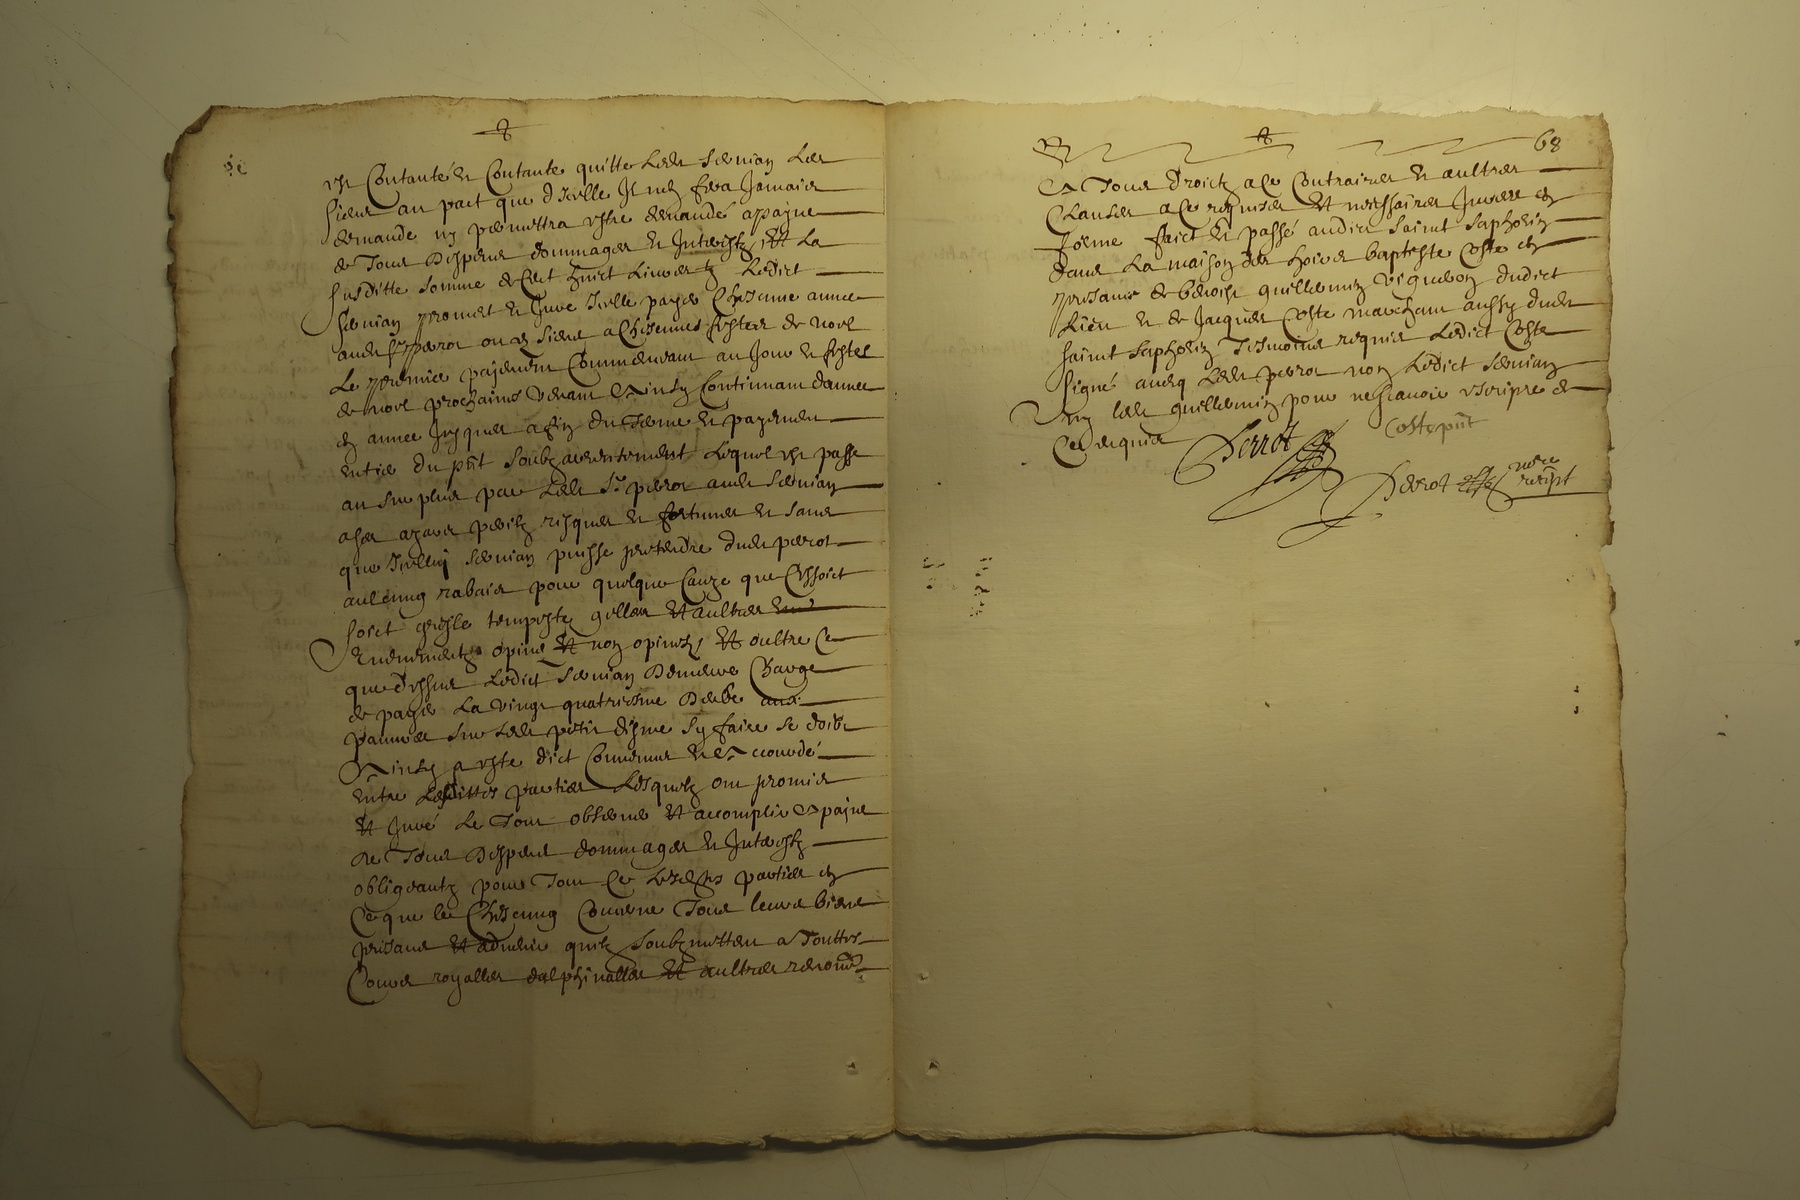 est Contanté et Contante quitte Ledt Servian Les
siens au pact que d'Icelle Il n'en fera Jamais
demande ny permettra estre demandé a payne
de Tous Despens dommages et Interestz Et La
susditte somme de Cent huict Livres Ledict
Servian promet et Jure Icelle payer Chascune annee
audt sr perrot ou es siens a Chascunes festes de noel
Le premier payement Commencant au Jour et festes
de noel prochains Venant Et Ainsy Continuant dannee
en annee Jusques a fin du Terme et payement
entier du pnt soubz Lequel est passe
au surplus par Ledt Sr perrot audt Servian
a ses azards perilz risques et fortunes et sans
que Icelluy Servian puisse pretendre dudt perrot
aulcung rabais pour quelque Cauze que Cessoict
soict gresle tempeste gellees Et aultres
Evenementz opines Et non opines Et oultre Ce
que dessus Ledict Servian Demeure Charge
de payer La vingt quatriesme Des aux
pauvres sur Ledt petit disme sy faire se doibt
Ainsy a este dict Convenus et Accordé
entre Lesdittes parties Lesquelz ont promis
Et Juré Le Tout observer Et accomplir A payne
de Tous Despens dommages et Interestz
obligeantz pour Tout Ce Lesdes parties en
Ce que les Chescung Concerne Tous leurs biens
presans Et advenir quilz soubzmettent a Touttes
Cours royalles dalphinalles Et aultres renonc
68
A Tous droictz a Ce Contraires et aultres
Clauses a Ce requises Et necessaires Jurees en
forme faict et passé audict saint saphorin
dans La maison des hoirs baptiste Coste en
presance de benoist guillermin vigneron dudict
Lieu et de Jacques Coste marchant aussy dudt
saint saphorin Tesmoins requis Ledict Coste
signé aveq Ledt perrot non Ledict Servian
ny ledt guillermin pour ne scavoir escripre de
Ce requis
Perrot
Coste pnt
Perrot nore
recept